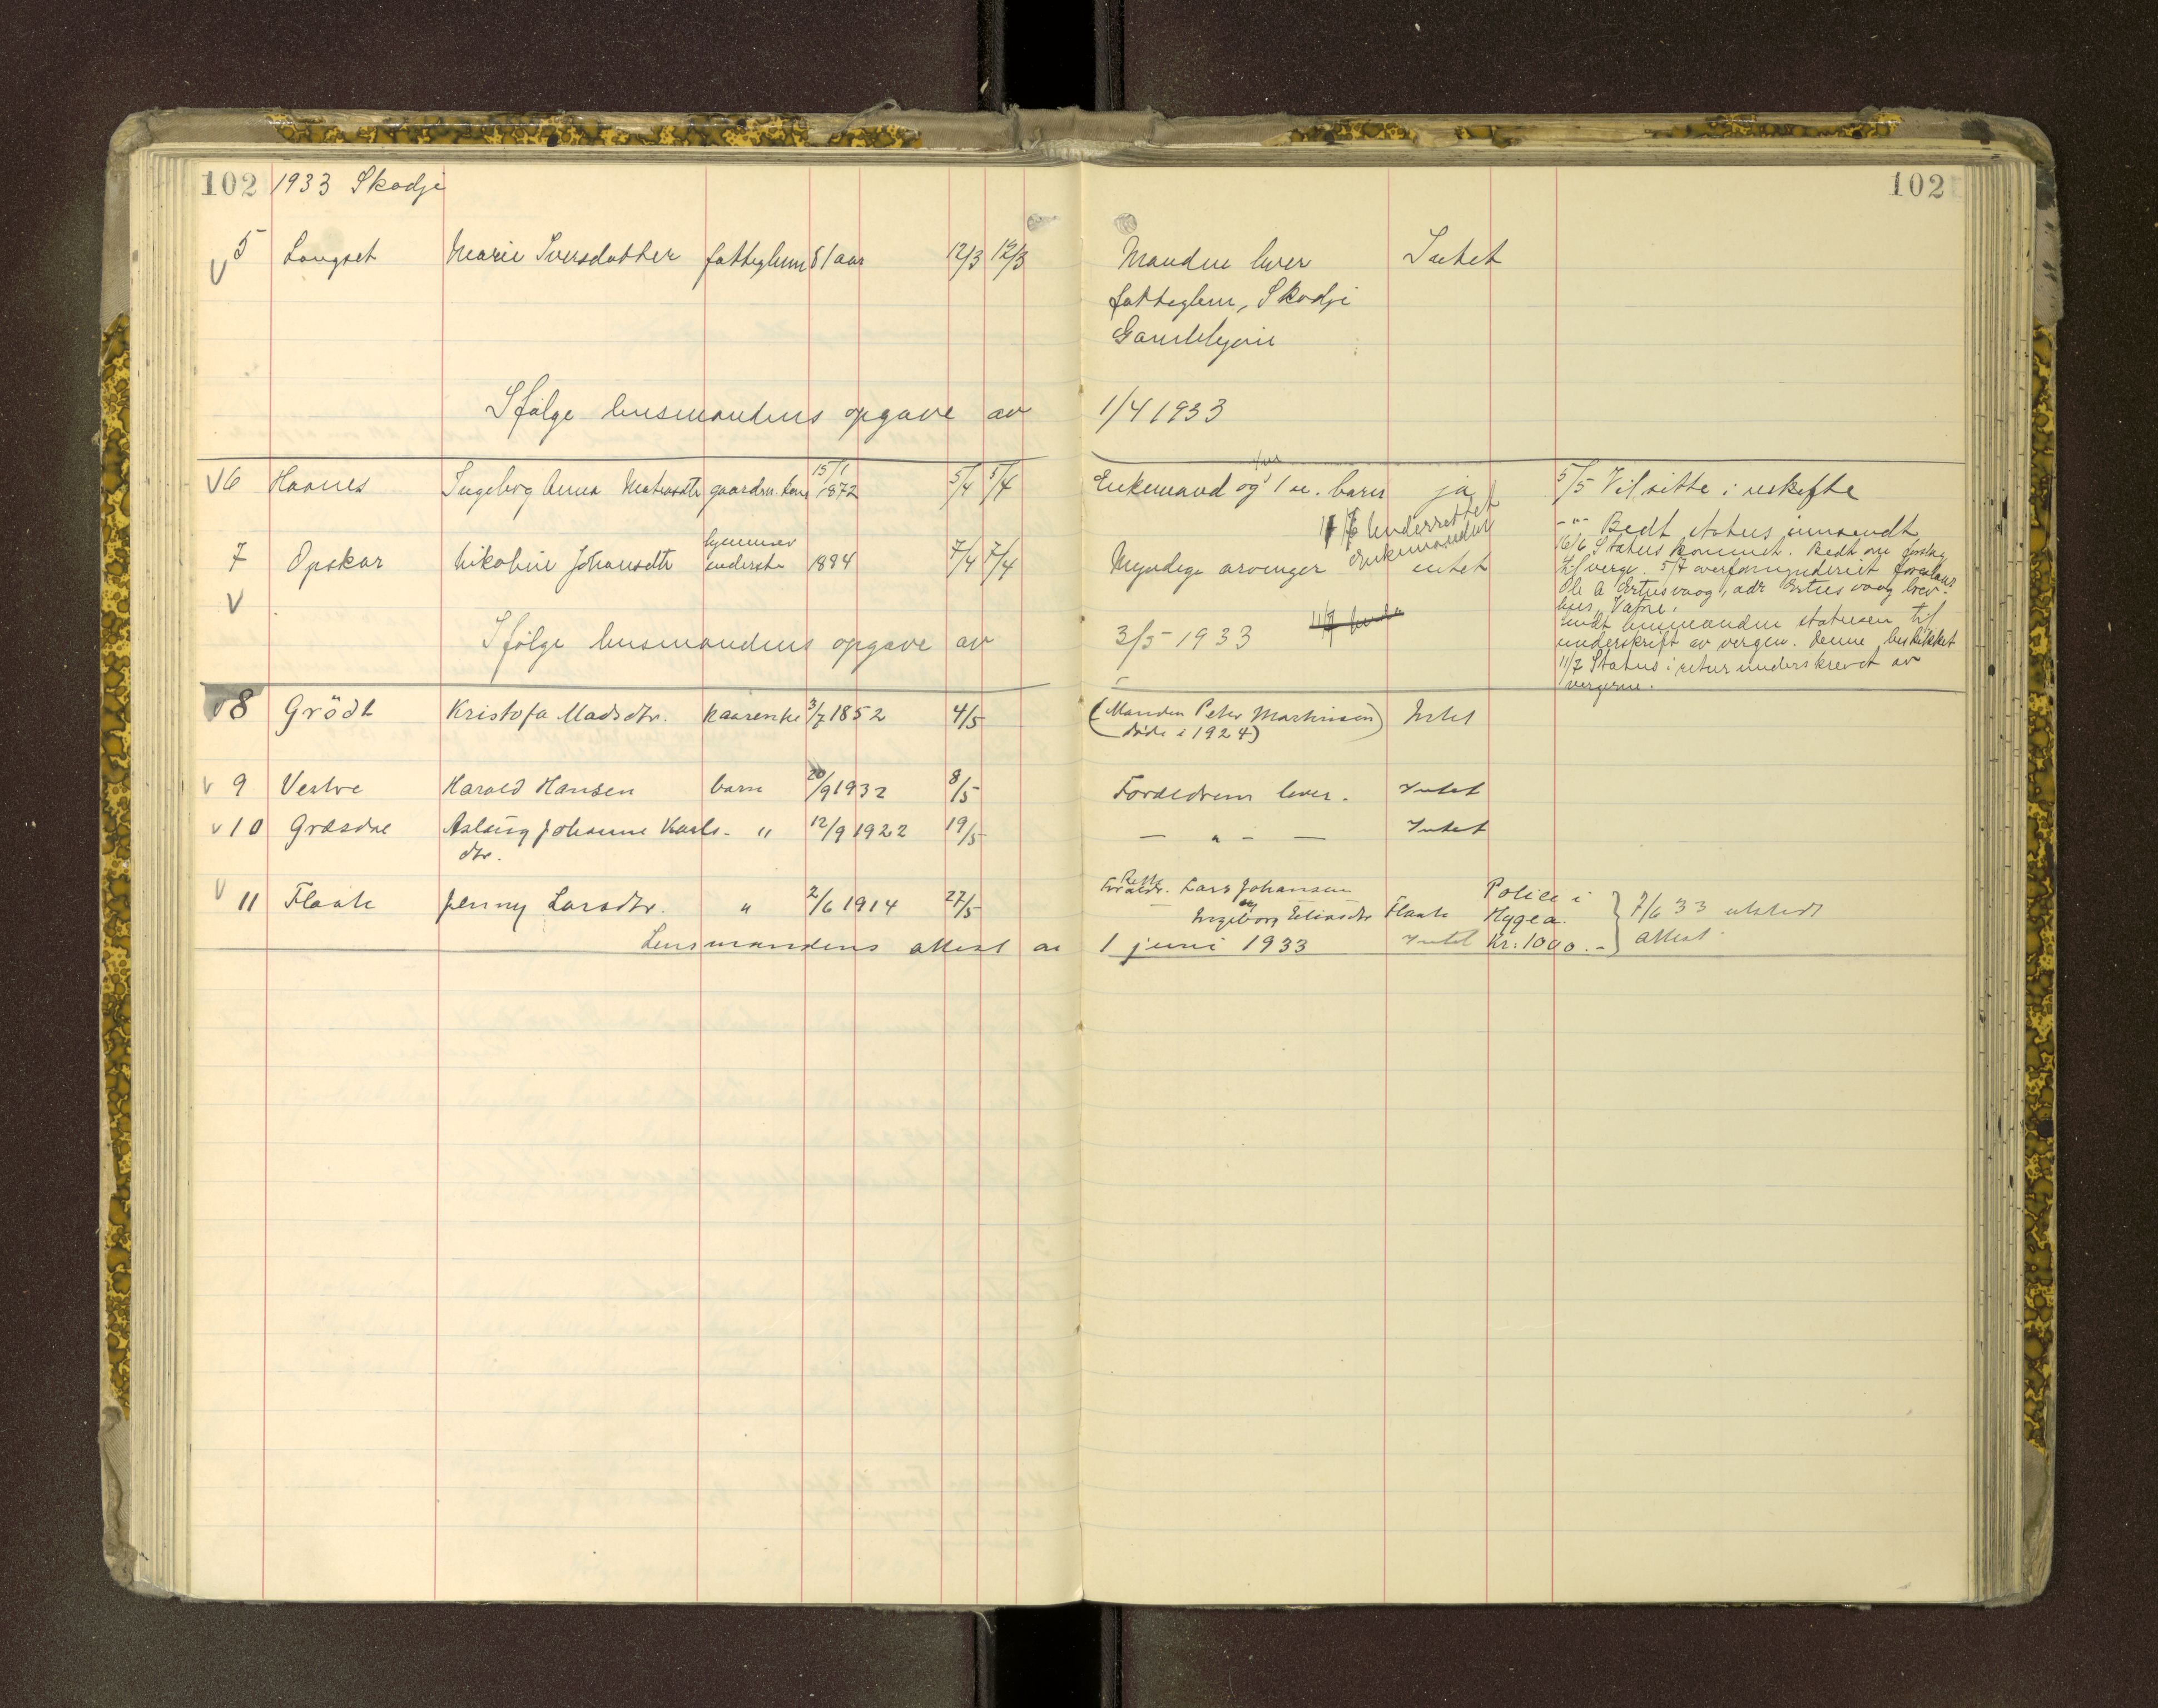 102 1933 Skodje 102
5 Langset Marie Iversdatter fatteglem 81 aar 12/3 12/3 Manden lever Intet
fatteglem, Skodje
Gamlehjem
Ifølge lensmandens opgave av 1/4 1933
6 Haanes Ingeborg Anna gaardm. kone 15/1 1872 5/4 5/4 Enkemand og 1 u. barn ja 5/5 Vil sitte i uskifte
11/7 Underrettet
enkemanden
-"- Bedt status innsendt
16/6 Status kommet. Bedt om forslag
til verge. 5/7 overformynderiet foreslaar
Ole A Ertesvaag, adr Ertesvaag brev-
hus, Vatne.
sendt lensmanden statusen til
underskrift av vergen. Denne beskikket
11/7 Status i retur underskrevet av
vergerne.
7 Opskar Nikoline Johansdtr 1894 7/4 7/4 Myndige arvinger intet
Ifølge lensmandens opgave av 3/5 1933 11/7
8 Grödt Kristofa Madsdtr. kaarenke 3/7 1852 4/5 (Manden Peter Martinsen Intet
døde i 1924)
9 Vestre Harald Hansen barn 20/9 1932 8/5 Foreldrene lever. Intet
10 Græsdal Aslaug Johanne Karls- " 12/9 1922 19/5 — " — — Intet
dtr.
11 Flaate Jenny Larsdtr. " 2/6 1914 27/5 Foreldr. Lars Johansen
og
Ingeborg Eliasdtr Flaate
Police i
Hygea.
Kr: 1000.-
7/6 33 utstedt
attest.
Lensmandens attest av 1 juni 1933 Intet